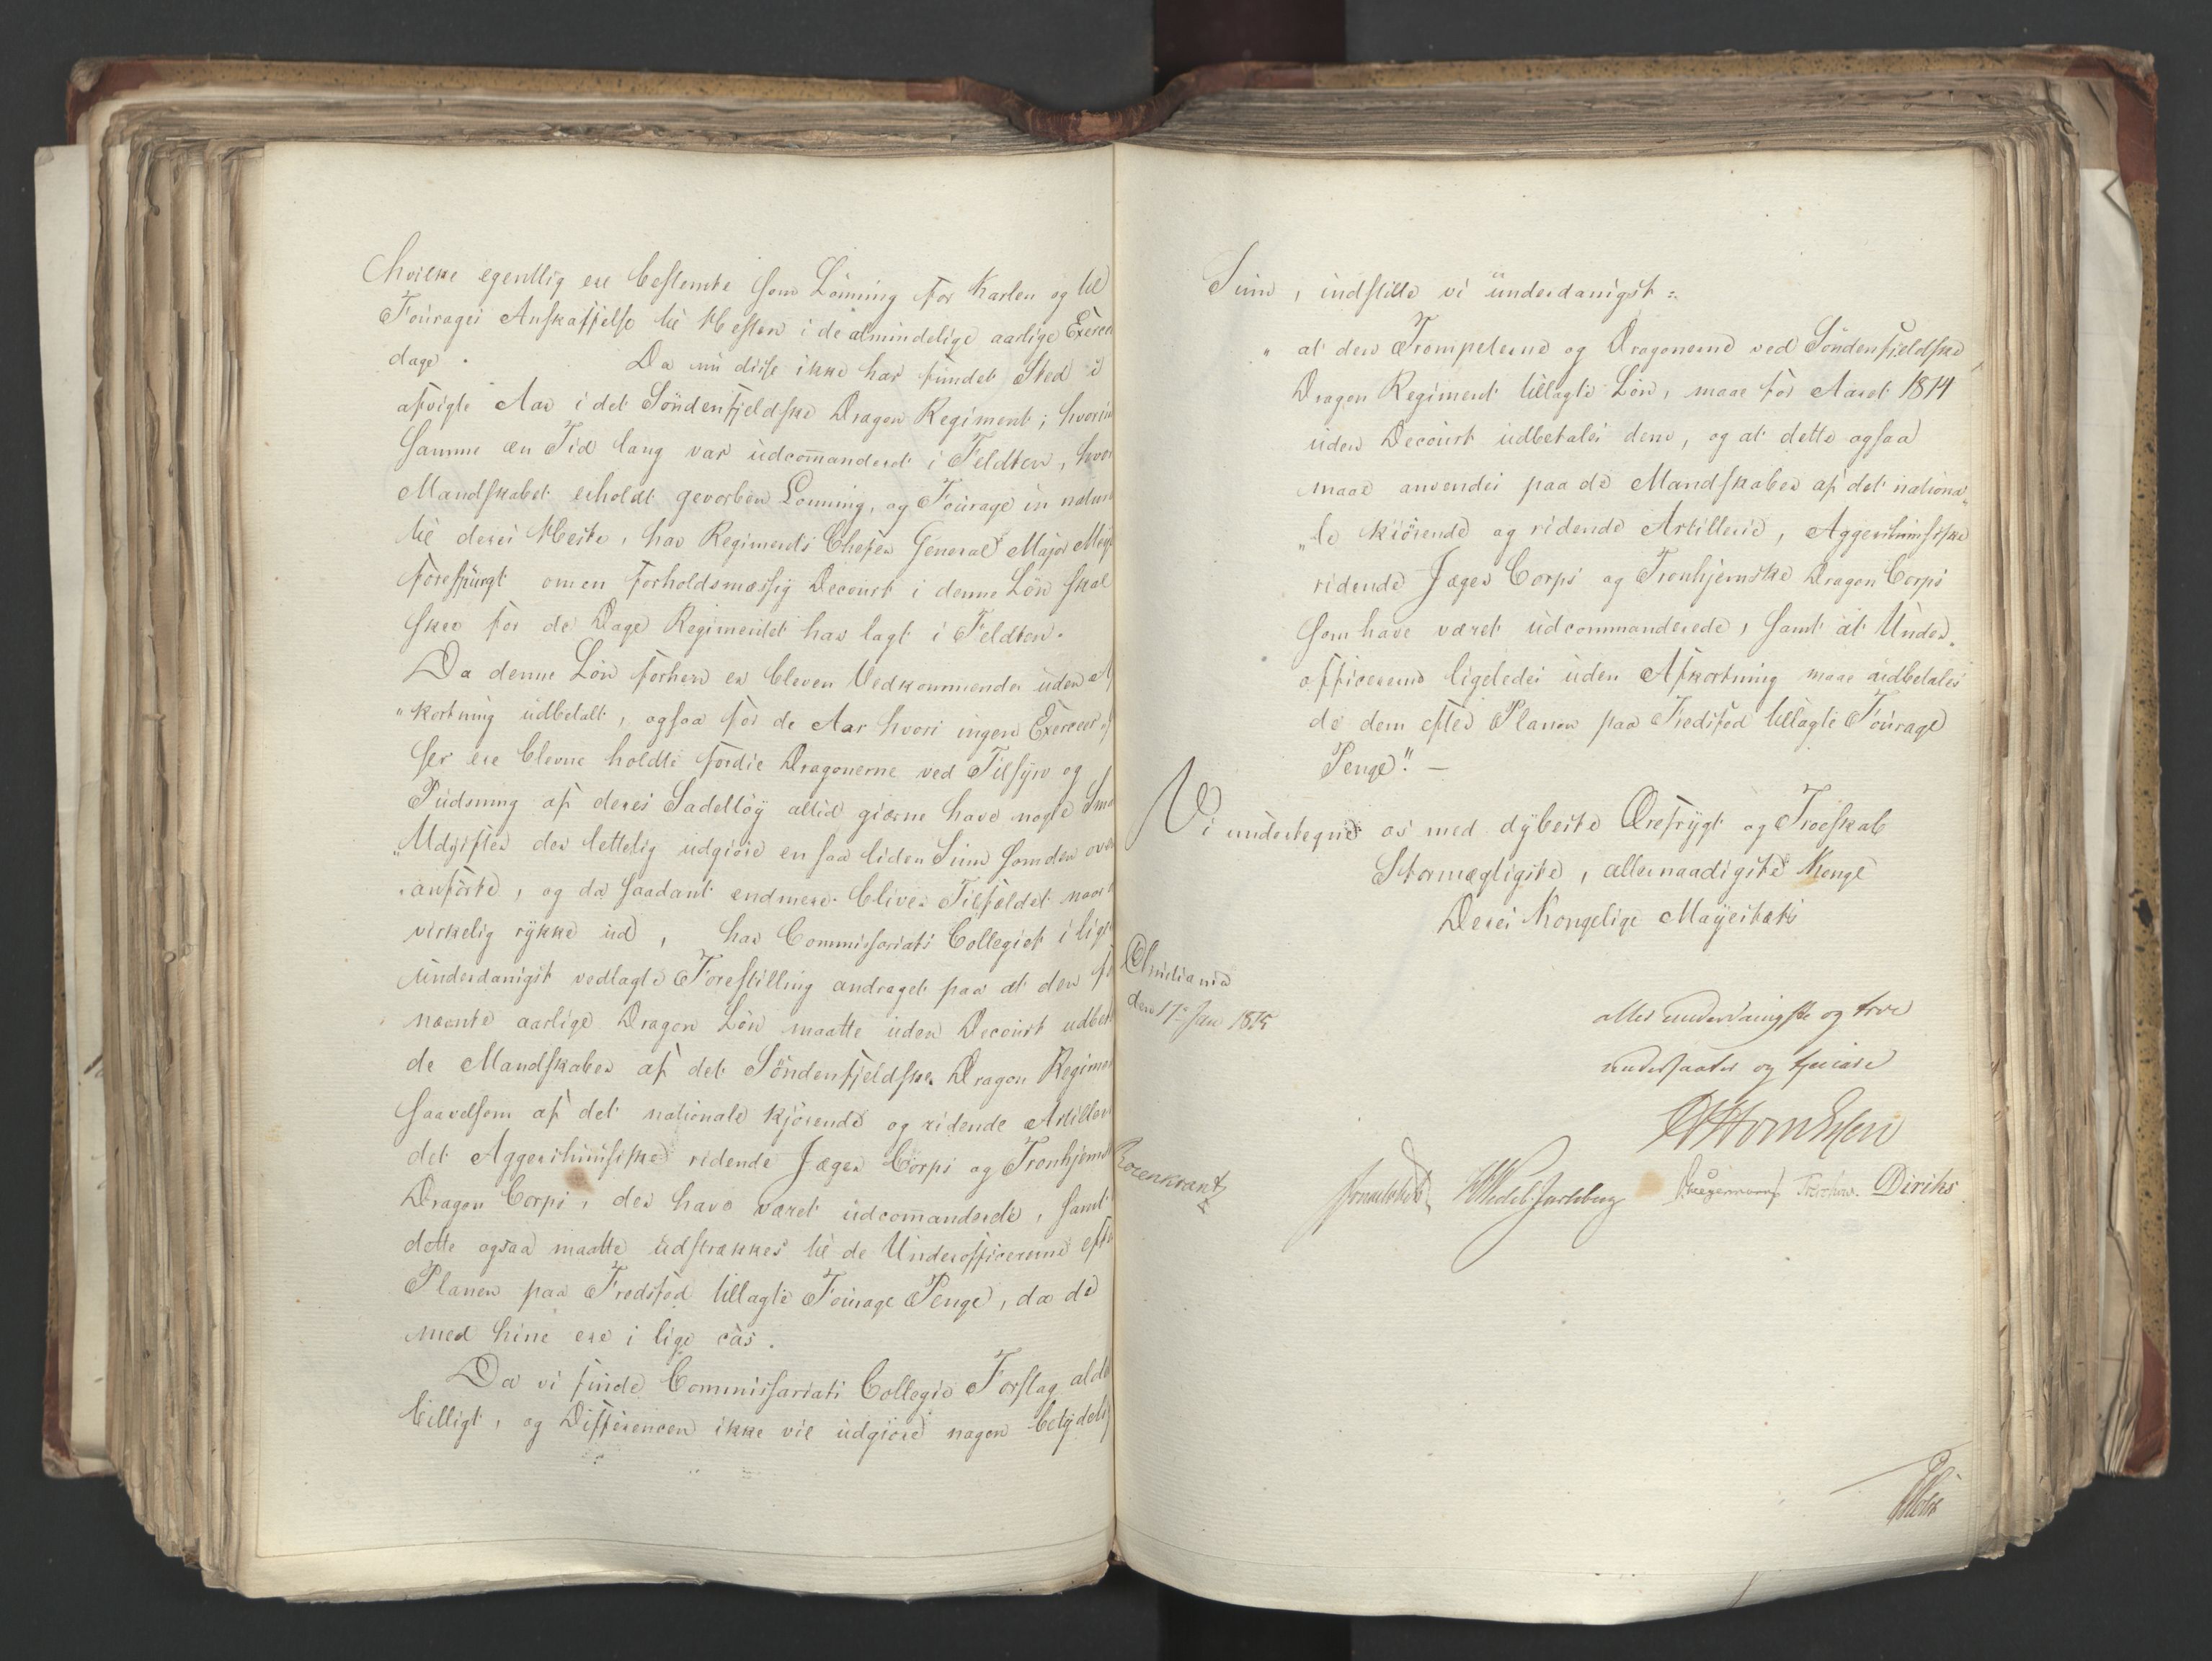 hvilke egentlig ere bestemte som Lönning for Karlen og til
Fourages Anskaffelse til Hesten i de almindelige aarlige Exerceer
dage. Da nu disse ikke har fundet Sted i
afvigte Aar i det Söndenfjeldske Dragon Regiment; hvorim
samme en Tid lang var udcommanderet i Feldten, hvor
Mandskabet erholdt gevorben Lönning, og Fourage in natura
til deres Heste, har Regiments Chefen General Major
forespurgt om en forholdsmæssig Decourt i denne Lön skal
skee for de Dage Regimentet har lagt i Feldten.
Da denne Lön forhen er bleven Vedkommende uden Af
"kortning udbetalt, ogsaa for de Aar hvori ingen Exerceer
ser ere blevne holdte fordie Dragonerne ved Tilsyn og
Pudsning af deres Sadeltöy altid gierne have nogle Smaa
"Udgifter der lettelig udgiöre en saa liden Sum som den oven
"anförte, og da saadant endmere bliver Tilfældet naar
virkelig rykke ud, har Commissariats Collegiet i lige
underdanigst vedlagte Forestilling andraget paa at den
nævnte aarlige Dragon Lön maatte uden Decourt udbet
de Mandskaber af det Söndenfjeldske Dragon Regimen
saavelsom af det nationale kjörende og ridende Artilleri
det Aggershuusiske ridende Jæger Corps og Tronhjemsk
Dragon Corps, der have været udcommanderede, samt
dette ogsaa maatte udstrækkes til de Underofficererne efter
Planen paa Fredsfod tillagte Fourage Penge, da de
med hine ere i lige cas.
Da vi finde Commissariats Collegie Forslag alde
billigt, og Differencen ikke vil udgiöre nogen betydelig
Sum, indstille vi underdanigst:
"at den Trompeterne og Dragonerne ved Söndenfjeldske
Dragon Regiment tillagte Lön, maae for Aaret 1814
uden Decourt udbetales dem, og at dette ogsaa
maae anvendes paa de Mandskaber af det nationa"
"le kiörende og ridende Artillerie, Aggershuusiske
ridende Jæger Corps og Tronhjemske Dragon Corps
som have været udcommanderede, samt at Under"
officererne ligeledes uden Afkortning maae udbetales
de dem efter Planen paa Fredsfod tillagte Fourage
Penge". —
Vi undertegne os med dybeste Ærefrygt og Troeskab
Stormægtigste, allernaadigste Konge
Deres Kongelige Mayestæts
Christiania
den 17de Jan 1815
allerunderdanigste og troe
undersaater og tjenere
Rosenkrantz
Sommerhielm HWedel Jarlsberg Hegermann Treschow. Diriks
Holst